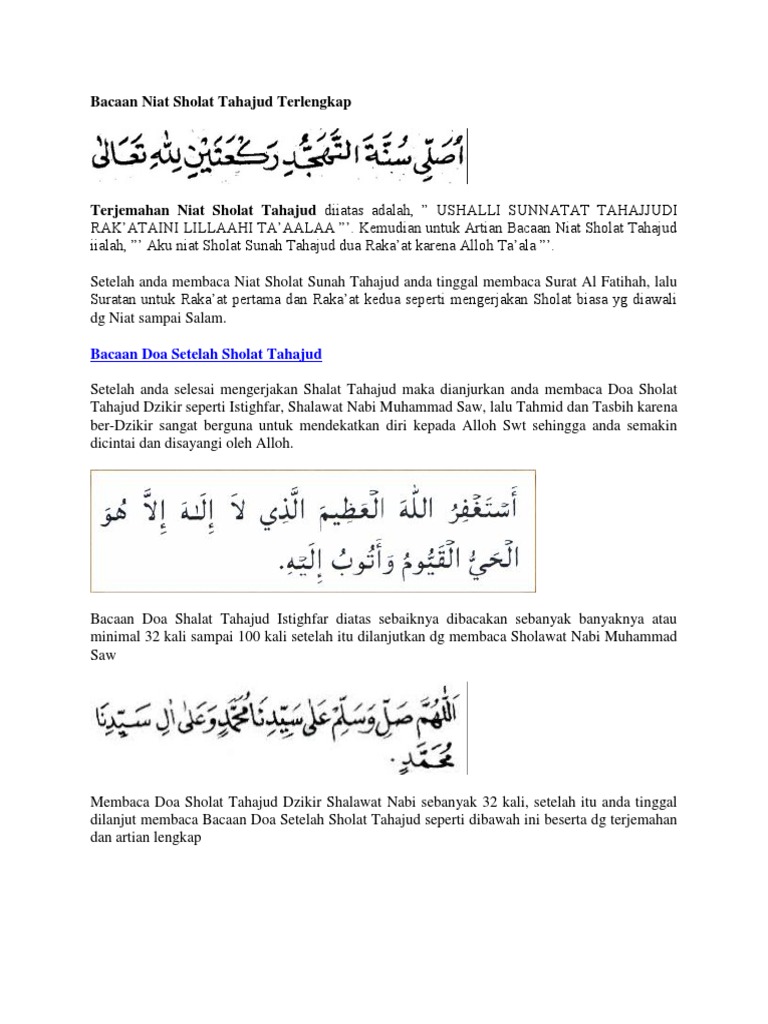 Bacaan Niat Sholat Tahajud Terlengkap
اُصَلِّى سُنَّةَ التَّهَجُّدِ رَكْعَتَيْنِ لِلّٰهِ تَعَالٰى
Terjemahan Niat Sholat Tahajud diiatas adalah, ” USHALLI SUNNATAT TAHAJJUDI
RAK’ATAINI LILLAAHI TA’AALAA ”’. Kemudian untuk Artian Bacaan Niat Sholat Tahajud
iialah, ”’ Aku niat Sholat Sunah Tahajud dua Raka’at karena Alloh Ta’ala ”’.
Setelah anda membaca Niat Sholat Sunah Tahajud anda tinggal membaca Surat Al Fatihah, lalu
Suratan untuk Raka’at pertama dan Raka’at kedua seperti mengerjakan Sholat biasa yg diawali
dg Niat sampai Salam.
Bacaan Doa Setelah Sholat Tahajud
Setelah anda selesai mengerjakan Shalat Tahajud maka dianjurkan anda membaca Doa Sholat
Tahajud Dzikir seperti Istighfar, Shalawat Nabi Muhammad Saw, lalu Tahmid dan Tasbih karena
ber-Dzikir sangat berguna untuk mendekatkan diri kepada Alloh Swt sehingga anda semakin
dicintai dan disayangi oleh Alloh.
أَسْتَغْفِرُ اللهَ الْعَظِيمَ الَّذِي لاَ إِلَـٰهَ إِلاَّ هُوَ
الْحَيُّ الْقَيُّومُ وَأَتُوبُ إِلَيْهِ.
Bacaan Doa Shalat Tahajud Istighfar diatas sebaiknya dibacakan sebanyak banyaknya atau
minimal 32 kali sampai 100 kali setelah itu dilanjutkan dg membaca Sholawat Nabi Muhammad
Saw
اَللّٰهُمَّ صَلِّ وَسَلِّمْ عَلٰى سَيِّدِنَا مُحَمَّدٍ وَعَلٰى اٰلِ سَيِّدِنَا
مُحَمَّدٍ.
Membaca Doa Sholat Tahajud Dzikir Shalawat Nabi sebanyak 32 kali, setelah itu anda tinggal
dilanjut membaca Bacaan Doa Setelah Sholat Tahajud seperti dibawah ini beserta dg terjemahan
dan artian lengkap